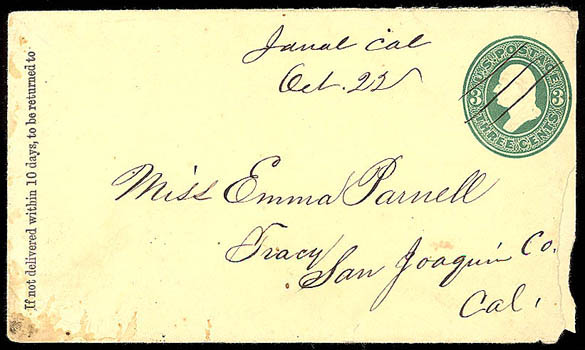 Janal Cal
Oct. 22
U.S. POSTAGE
3 3
THREE CENTS
Miss Emma Parnell
Tracy
San Joaquin Co.
Cal.
If not delivered within 10 days, to be returned to